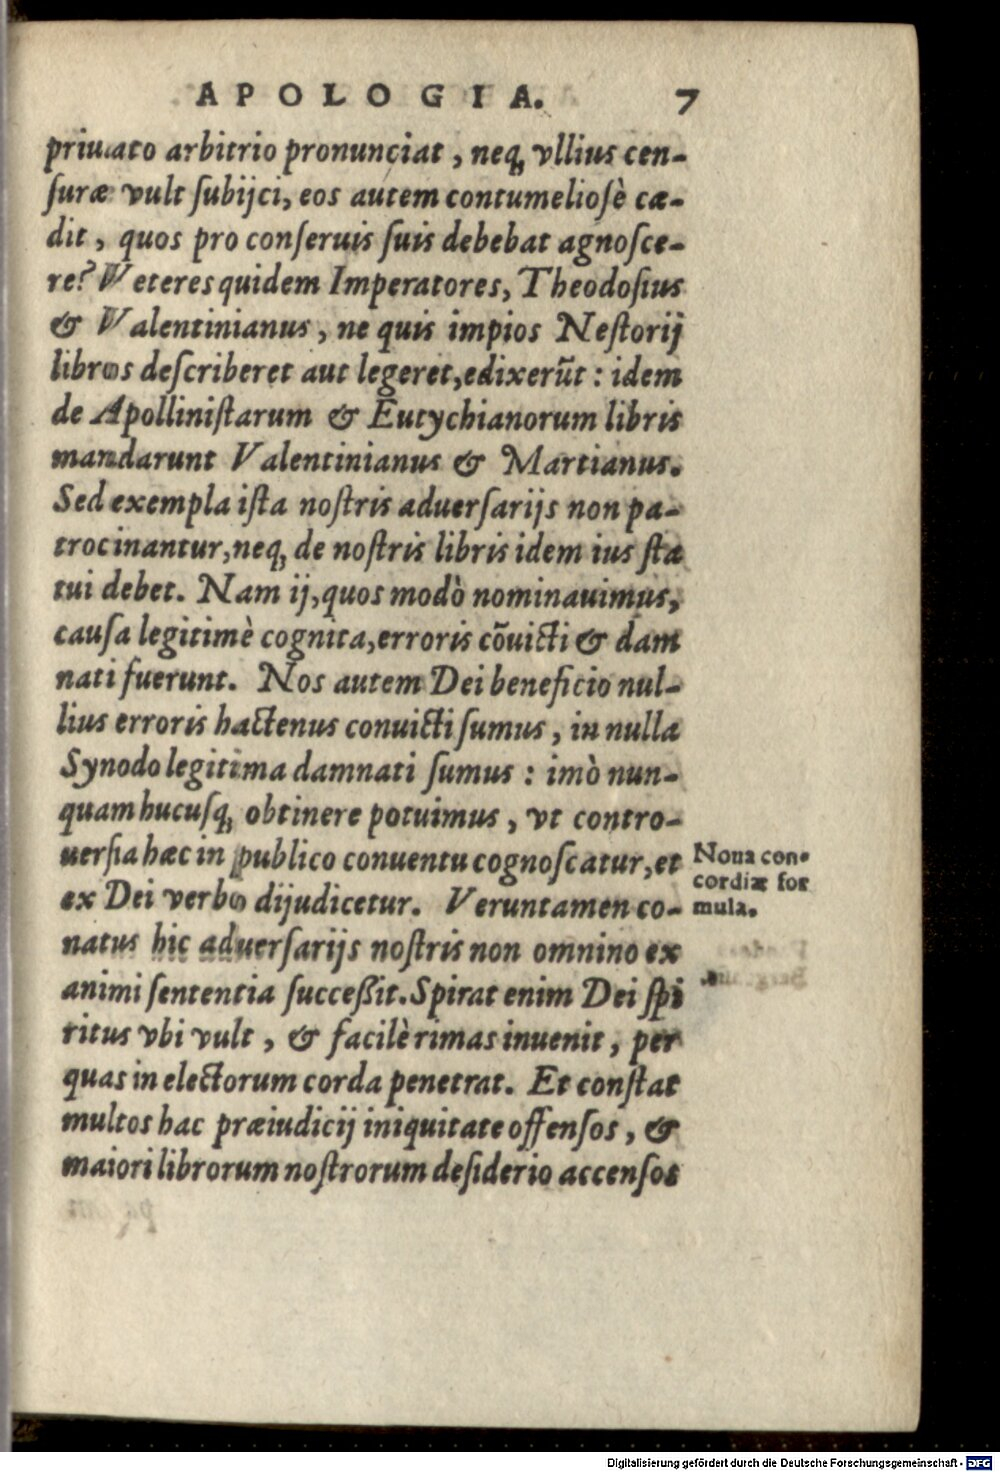 APOLOGIA. 7
priuato arbitrio pronunciat, neq; vllius cen-
ſuræ vult ſubijci, eos autem contumelioſè cæ-
dit, quos pro conſeruis ſuis debebat agnoſce-
re? Veteres quidem Imperatores, Theodoſius
& Valentinianus, ne quis impios Neſtorij
libros deſcriberet aut legeret, edixerūt: idem
de Apolliniſtarum & Eutychianorum libris
mandarunt Valentinianus & Martianus.
Sed exempla iſta noſtris aduerſarijs non pa-
trocinantur, neq; de noſtris libris idem ius ſta
tui debet. Nam ij, quos modò nominauimus,
cauſa legitimè cognita, erroris cōuicti & dam
nati fuerunt. Nos autem Dei beneficio nul-
lius erroris hactenus conuicti ſumus, in nulla
Synodo legitima damnati ſumus: imò nun-
quam hucuſq; obtinere potuimus, vt contro-
uerſia hæc in publico conuentu cognoſcatur, et
ex Dei verbo dijudicetur. Veruntamen co-
natus hic aduerſarijs noſtris non omnino ex
animi ſententia ſucceßit. Spirat enim Dei ſpi
ritus vbi vult, & facilè rimas inuenit, per
quas in electorum corda penetrat. Et conſtat
multos hac præiudicij iniquitate offenſos, &
maiori librorum noſtrorum deſiderio accenſos
Noua con-
cordiæ for
mula.
Digitalisierung gefördert durch die Deutsche Forschungsgemeinschaft - DFG